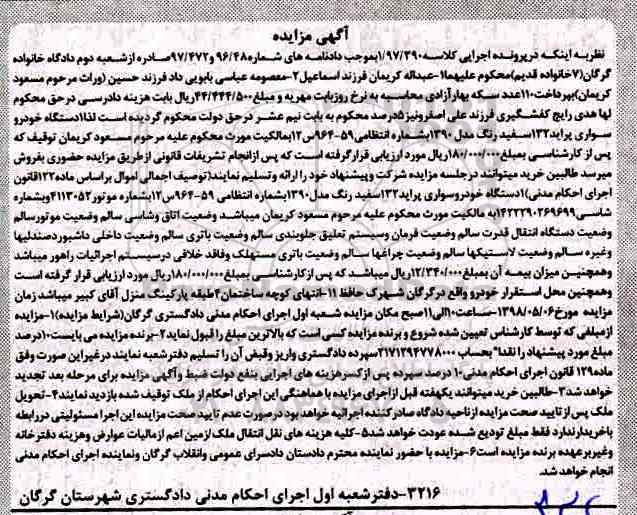 آگهی مزایده
نظر به اینکه در پرونده اجرایی کلاسه ۱/۹۷/۳۹۰ بموجب دادنامه های شماره ۹۶/۴۸ و ۹۷/۴۷۲ صادره از شعبه دوم دادگاه خانواده
گرگان (۷خانواده قدیم) محکوم علیهما ۱-عبداله کریمان فرزند اسماعیل ۲-معصومه عباسی بابویی داد فرزند حسین (وراث مرحوم مسعود
کریمان) بپرداخت ۱۱۰عدد سکه بهار آزادی محاسبه به نرخ روز بابت مهریه و مبلغ ۴۴/۴۴۴/۵۰۰ ریال بابت هزینه دادرسی در حق محکوم
لها هدی رایج کفشگیری فرزند علی اصغر و نیز ۵درصد محکوم به بابت نیم عشر در حق دولت محکوم گردیده است لذا ۱دستگاه خودرو
سواری پراید ۱۳۲سفید رنگ مدل ۱۳۹۰ بشماره انتظامی ۵۹-۹۶۴س۱۲ بمالکیت مورث محکوم علیه مرحوم مسعود کریمان توقیف که
پس از کارشناسی بمبلغ ۱۸۰/۰۰۰/۰۰۰ ریال مورد ارزیابی قرار گرفته است که پس از انجام تشریفات قانونی از طریق مزایده حضوری بفروش
میرسد طالبین خرید میتوانند در جلسه مزایده شرکت و پیشنهاد خود را ارائه و تسلیم نمایند (توصیف اجمالی اموال بر اساس ماده ۱۲۲قانون
اجرای احکام مدنی) ۱دستگاه خودرو سواری پراید ۱۳۲سفید رنگ مدل ۱۳۹۰ بشماره انتظامی ۵۹-۹۶۴س۱۲ بشماره موتور ۴۱۱۳۰۵۲ و بشماره
شاسی ۱۴۲۲۲۹۰۲۶۹۶۹۹ به مالکیت مورث محکوم علیه مرحوم مسعود کریمان میباشد وضعیت اتاق و شاسی سالم وضعیت موتور سالم
وضعیت دستگاه انتقال قدرت سالم وضعیت فرمان و سیستم تعلیق جلوبندی سالم وضعیت باتری سالم وضعیت داخلی داشبورد صندلیها
وغیره سالم وضعیت لاستیکها سالم وضعیت چراغها سالم وضعیت باتری مستهلک و فاقد خلافی در سیستم اجرائیات راهور میباشد
وهمچنین میزان بیمه آن بمبلغ ۱۲/۳۴۰/۰۰۰ ریال میباشد که پس از کارشناسی بمبلغ ۱۸۰/۰۰۰/۰۰۰ ریال مورد ارزیابی قرار گرفته است
وهمچنین محل استقرار خودرو واقع در گرگان شهرک حافظ ۱۱-انتهای کوچه ساختمان ۴طبقه پارکینگ منزل آقای کبیر میباشد زمان
مزایده مورخ ۱۳۹۸/۰۵/۰۶-ساعت ۱۰الی ۱۱صبح مکان مزایده شعبه اول اجرای احکام مدنی دادگستری گرگان (شرایط مزایده) ۱-مزایده
از مبلغی که توسط کارشناس تعیین شده شروع و برنده مزایده کسی است که بالاترین مبلغ را قبول نماید ۲-برنده مزایده می بایست ۱۰درصد
مبلغ مورد پیشنهاد را نقدا" بحساب ۲۱۷۱۲۹۴۷۷۸۰۰۰ سپرده دادگستری واریز و قبض آن را تسلیم دفتر شعبه نمایند در غیر این صورت وفق
ماده ۱۲۹ قانون اجرای احکام مدنی ۱۰ درصد سپرده پس از کسر هزینه های اجرایی بنفع دولت ضبط و آگهی مزایده برای مرحله بعد تجدید
خواهد شد ۳-طالبین خرید میتوانند یکهفته قبل از اجرای مزایده با هماهنگی این اجرای احکام از ملک توقیف شده بازدید نمایند ۴-تحویل
ملک پس از تایید صحت مزایده از ناحیه دادگاه صادر کننده اجرائیه خواهد بود در صورت عدم تایید صحت مزایده این اجرا مسئولیتی در رابطه
با خریدار ندارد فقط مبلغ تودیع شده عودت خواهد شد ۵-کلیه هزینه های نقل انتقال ملک از مین اعم از مالیات عوارض و هزینه دفترخانه
وغیر بر عهده برنده مزایده است ۶-مزایده با حضور نماینده محترم دادستان دادسرای عمومی و انقلاب گرگان و نماینده اجرای احکام مدنی
انجام خواهد شد.
۳۲۱۶-دفتر شعبه اول اجرای احکام مدنی دادگستری شهرستان گرگان